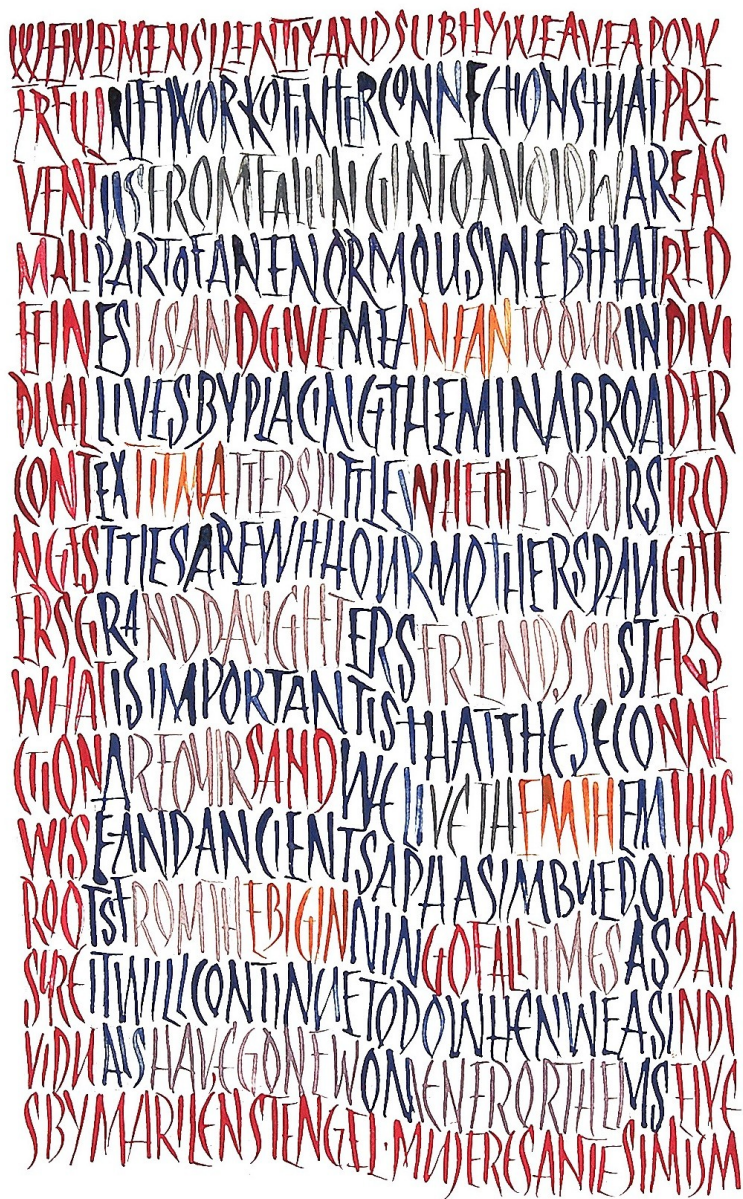 WEWOMENSILENTLYANDSUBTLYWEAVEAPOW
ERFULNETWORKOFINTERCONNECTIONSTHATPRE
VENTUSFROMFALLINGINTOAVOIDWAREAS
MALLPARTOFANENORMOUSWEBTHATRED
EFINESUSANDGIVE TOOURINDIVI
DUALLIVESBYPLACINGTHEMINABROADER
CONTEXTITMATTERSLITTLEWHETHEROURSTRO
NGESTTIESAREWITHOURMOTHERSDAUGHT
ERSGRANDDAUGHTERSFRIENDSSISTERS
WHATISIMPORTANTISTHATTHESECONNE
CTIONAREOURSANDWELIVETHEM THIS
WISEANDANCIENTSAPHASIMBUEDOURR
ROOTSFROMTHEBIGINNINGOFALLTIMESASIAM
SUREITWILLCONTINUETODOWHENWEASINDI
VIDUALSHAVEGONEWOMENFRORTHEMSELVE
SBYMARILENSTENGEL·MUJERESANTESIMISM